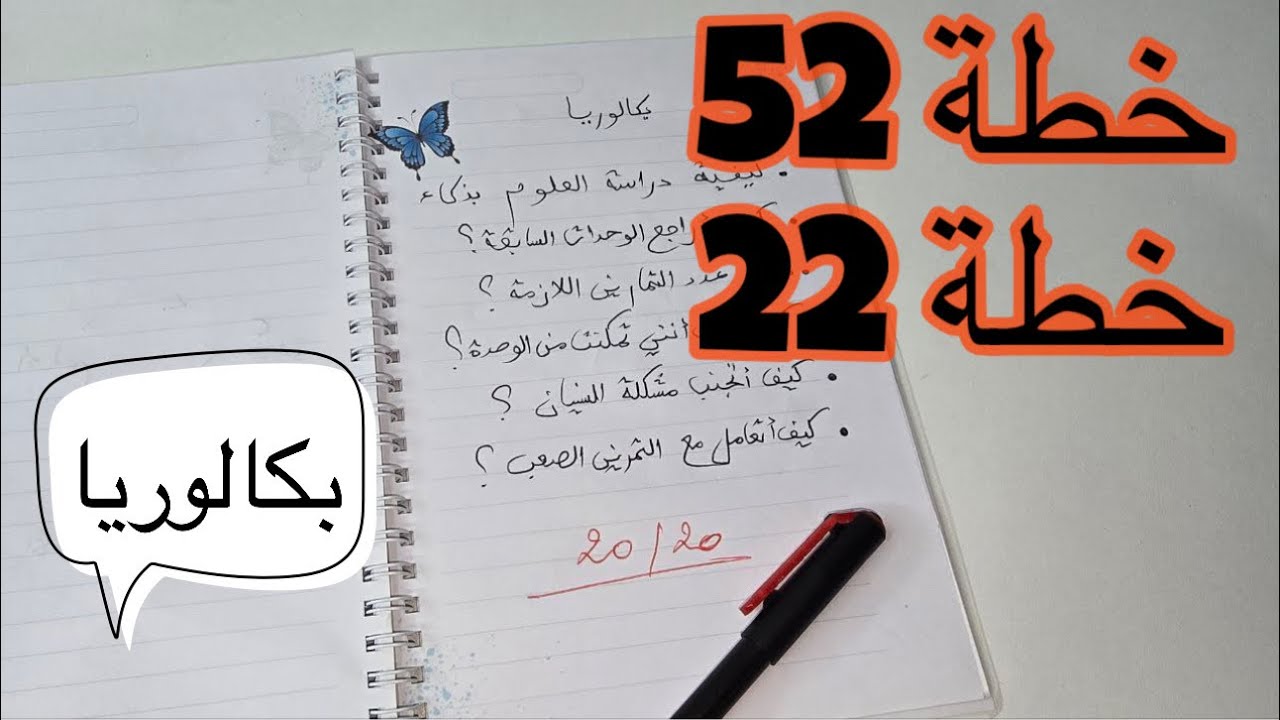 خطة 52
خطة 22
بكالوريا
كيفية دراسة العلوم بذكاء
راجع الوحدات السابقة ؟
عدد التمارين اللازمة ؟
أنني تمكنت من الوحدة ؟
كيف أتجنب مشكلة النسيان ؟
كيف أتعامل مع التمرين الصعب ؟
20/20
بكالوريا